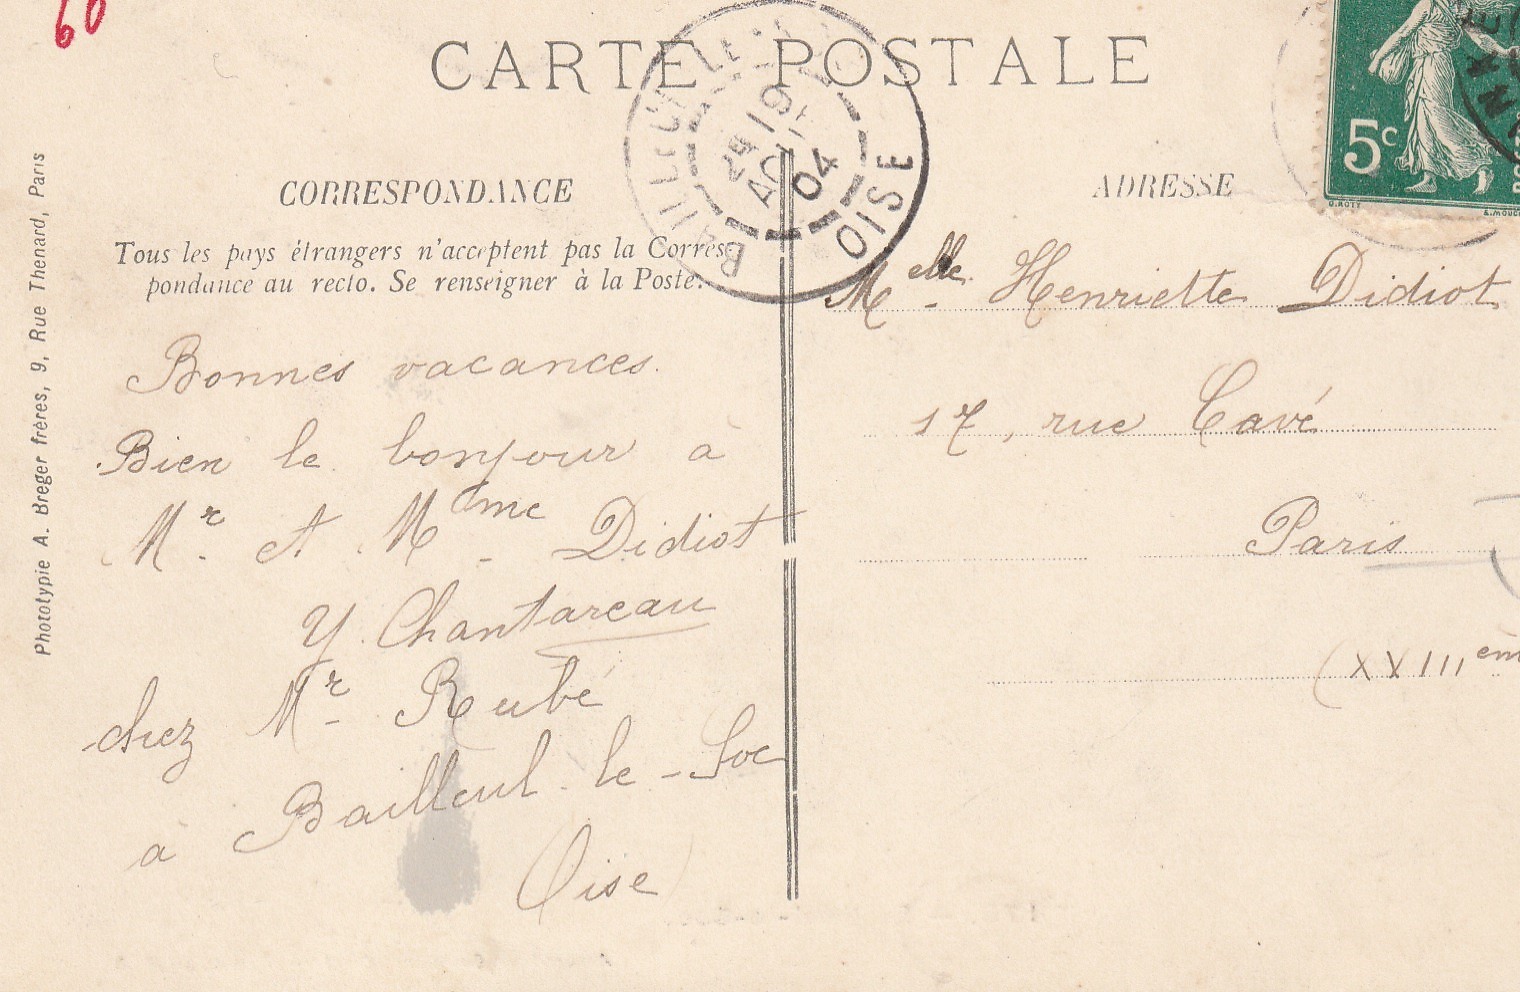 60
CARTE POSTALE
BAILLEUL-LE-
OISE
24 / 9
AO
04
5c
O. ROTY
CORRESPONDANCE
Tous les pays étrangers n'acceptent pas la Corres-
pondance au recto. Se renseigner à la Poste.
Bonnes vacances.
Bien le bonjour à
Mr. et Mme. Didiot
Y. Chantareau
chez Mr. Rubé
à Bailleul-le-Soc
Oise
ADRESSE
Melle. Henriette Didiot
17, rue Cavé
Paris
(XVIIIem
Phototypie A. Breger frères, 9, Rue Thenard, Paris